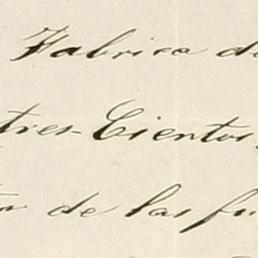 Fabrica de
tres Cientos
de las fu